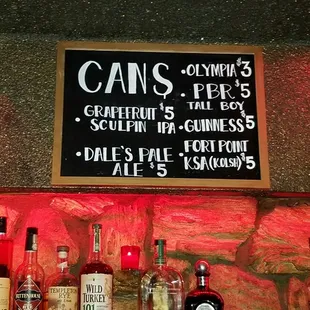 CANS
GRAPEFRUIT $5
SCULPIN IPA
• DALE'S PALE
ALE $5
• OLYMPIA $3
• PBR $5
TALL BOY
• GUINNESS $5
• FORT POINT
KSA (KOLSH) $5
RITTENHOUSE
TEMPLETON
RYE
WILD
TURKEY
101